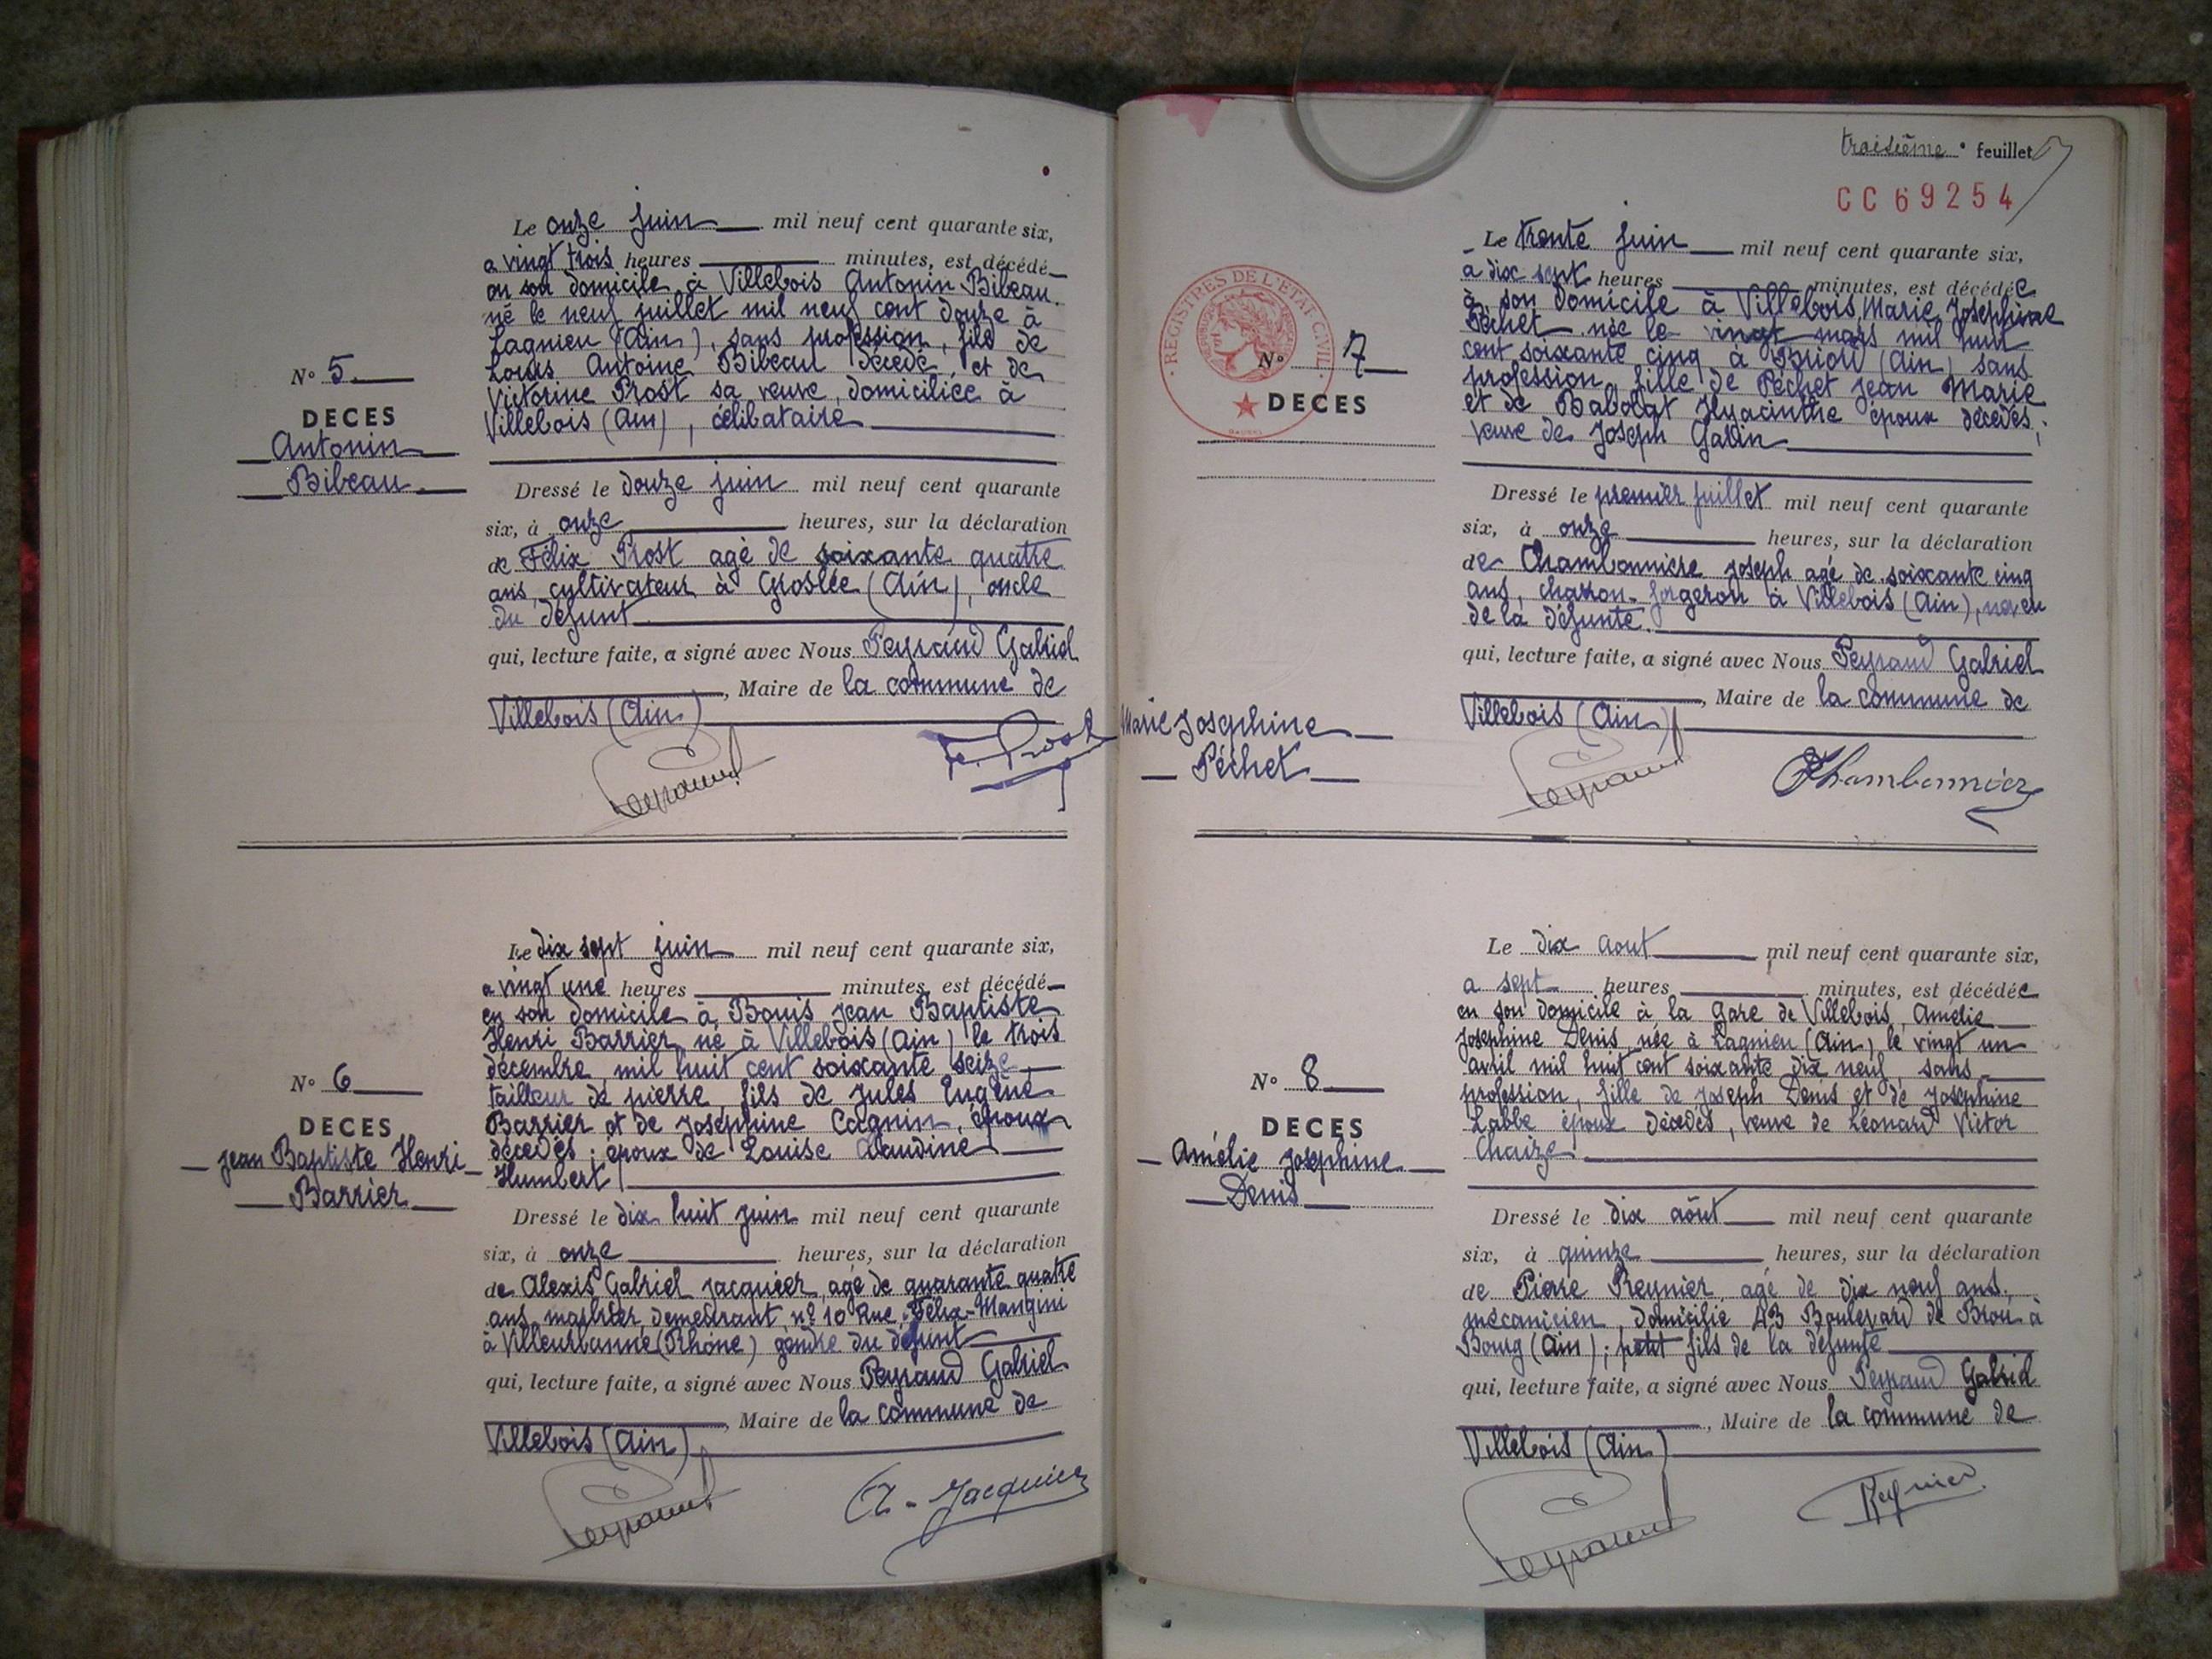 Le onze juin mil neuf cent quarante six,
a vingt trois heures minutes, est décédé
en son domicile à Villebois Antonin Bibeau.
né le neuf juillet mil neuf cent douze à
Lagnieu (Ain), sans profession, fils de
Louis Antoine Bibeau décédé, et de
Victorine Prost sa veuve, domiciliée à
Villebois (Ain), célibataire
N° 5
DECES
Antonin
Bibeau
Dressé le douze juin mil neuf cent quarante
six, à onze heures, sur la déclaration
de Félix Prost agé de soixante quatre
ans, cultivateur à Groslée (Ain), oncle
du défunt
qui, lecture faite, a signé avec Nous Peyraud Gabriel
, Maire de la commune de
Villebois (Ain)
Peyraud
Fe. Prost
Le dix sept juin mil neuf cent quarante six,
a vingt une heures minutes, est décédé
en son domicile à Bouis Jean Baptiste
Henri Barrier né à Villebois (Ain) le trois
décembre mil huit cent soixante seize
tailleur de pierre fils de Jules Eugène
Barrier et de Joséphine Cagnin, époux
décédés ; époux de Louise Claudine
Humbert
N° 6
DECES
Jean Baptiste Henri
Barrier
Dressé le dix huit juin mil neuf cent quarante
six, à onze heures, sur la déclaration
de Alexis Gabriel Jacquier, agé de quarante quatre
ans, demeurant n° 10 Rue Félix-Mangini
à Villeurbanne (Rhône) gendre du défunt
qui, lecture faite, a signé avec Nous Peyraud Gabriel
, Maire de la commune de
Villebois (Ain)
Peyraud
A. Jacquier
troisième feuillet
CC69254
Le trente juin mil neuf cent quarante six,
a dix sept heures minutes, est décédée
à son domicile à Villebois, Marie Joséphine
Péchet née le vingt mars mil huit
cent soixante cinq à Briord (Ain) sans
profession, fille de Péchet Jean Marie
et de Babolat Hyacinthe époux décédés ;
veuve de Joseph Gallin
REGISTRES DE L'ETAT CIVIL
N° 7
DECES
Marie Joséphine
Péchet
Dressé le premier juillet mil neuf cent quarante
six, à onze heures, sur la déclaration
de Chambonnière Joseph agé de soixante cinq
ans, charron-forgeron à Villebois (Ain), neveu
de la défunte.
qui, lecture faite, a signé avec Nous Peyraud Gabriel
, Maire de la commune de
Villebois (Ain)
Peyraud
Le dix aout mil neuf cent quarante six,
a sept heures minutes, est décédée
en son domicile à la gare de Villebois, Amélie
Joséphine Denis, née à Lagnieu (Ain), le vingt un
avril mil huit cent soixante dix neuf, sans
profession, fille de Joseph Denis et de Joséphine
Labbe époux décédés, veuve de Léonard Victor
Chaize.
N° 8
DECES
Amélie Joséphine
Denis
Dressé le dix août mil neuf cent quarante
six, à quinze heures, sur la déclaration
de Pierre Reynier, agé de dix neuf ans,
mécanicien, domicilié 43 Boulevard de Brou à
Bourg (Ain) ; petit fils de la défunte
qui, lecture faite, a signé avec Nous Peyraud Gabriel
, Maire de la commune de
Villebois (Ain)
Peyraud
Reynier